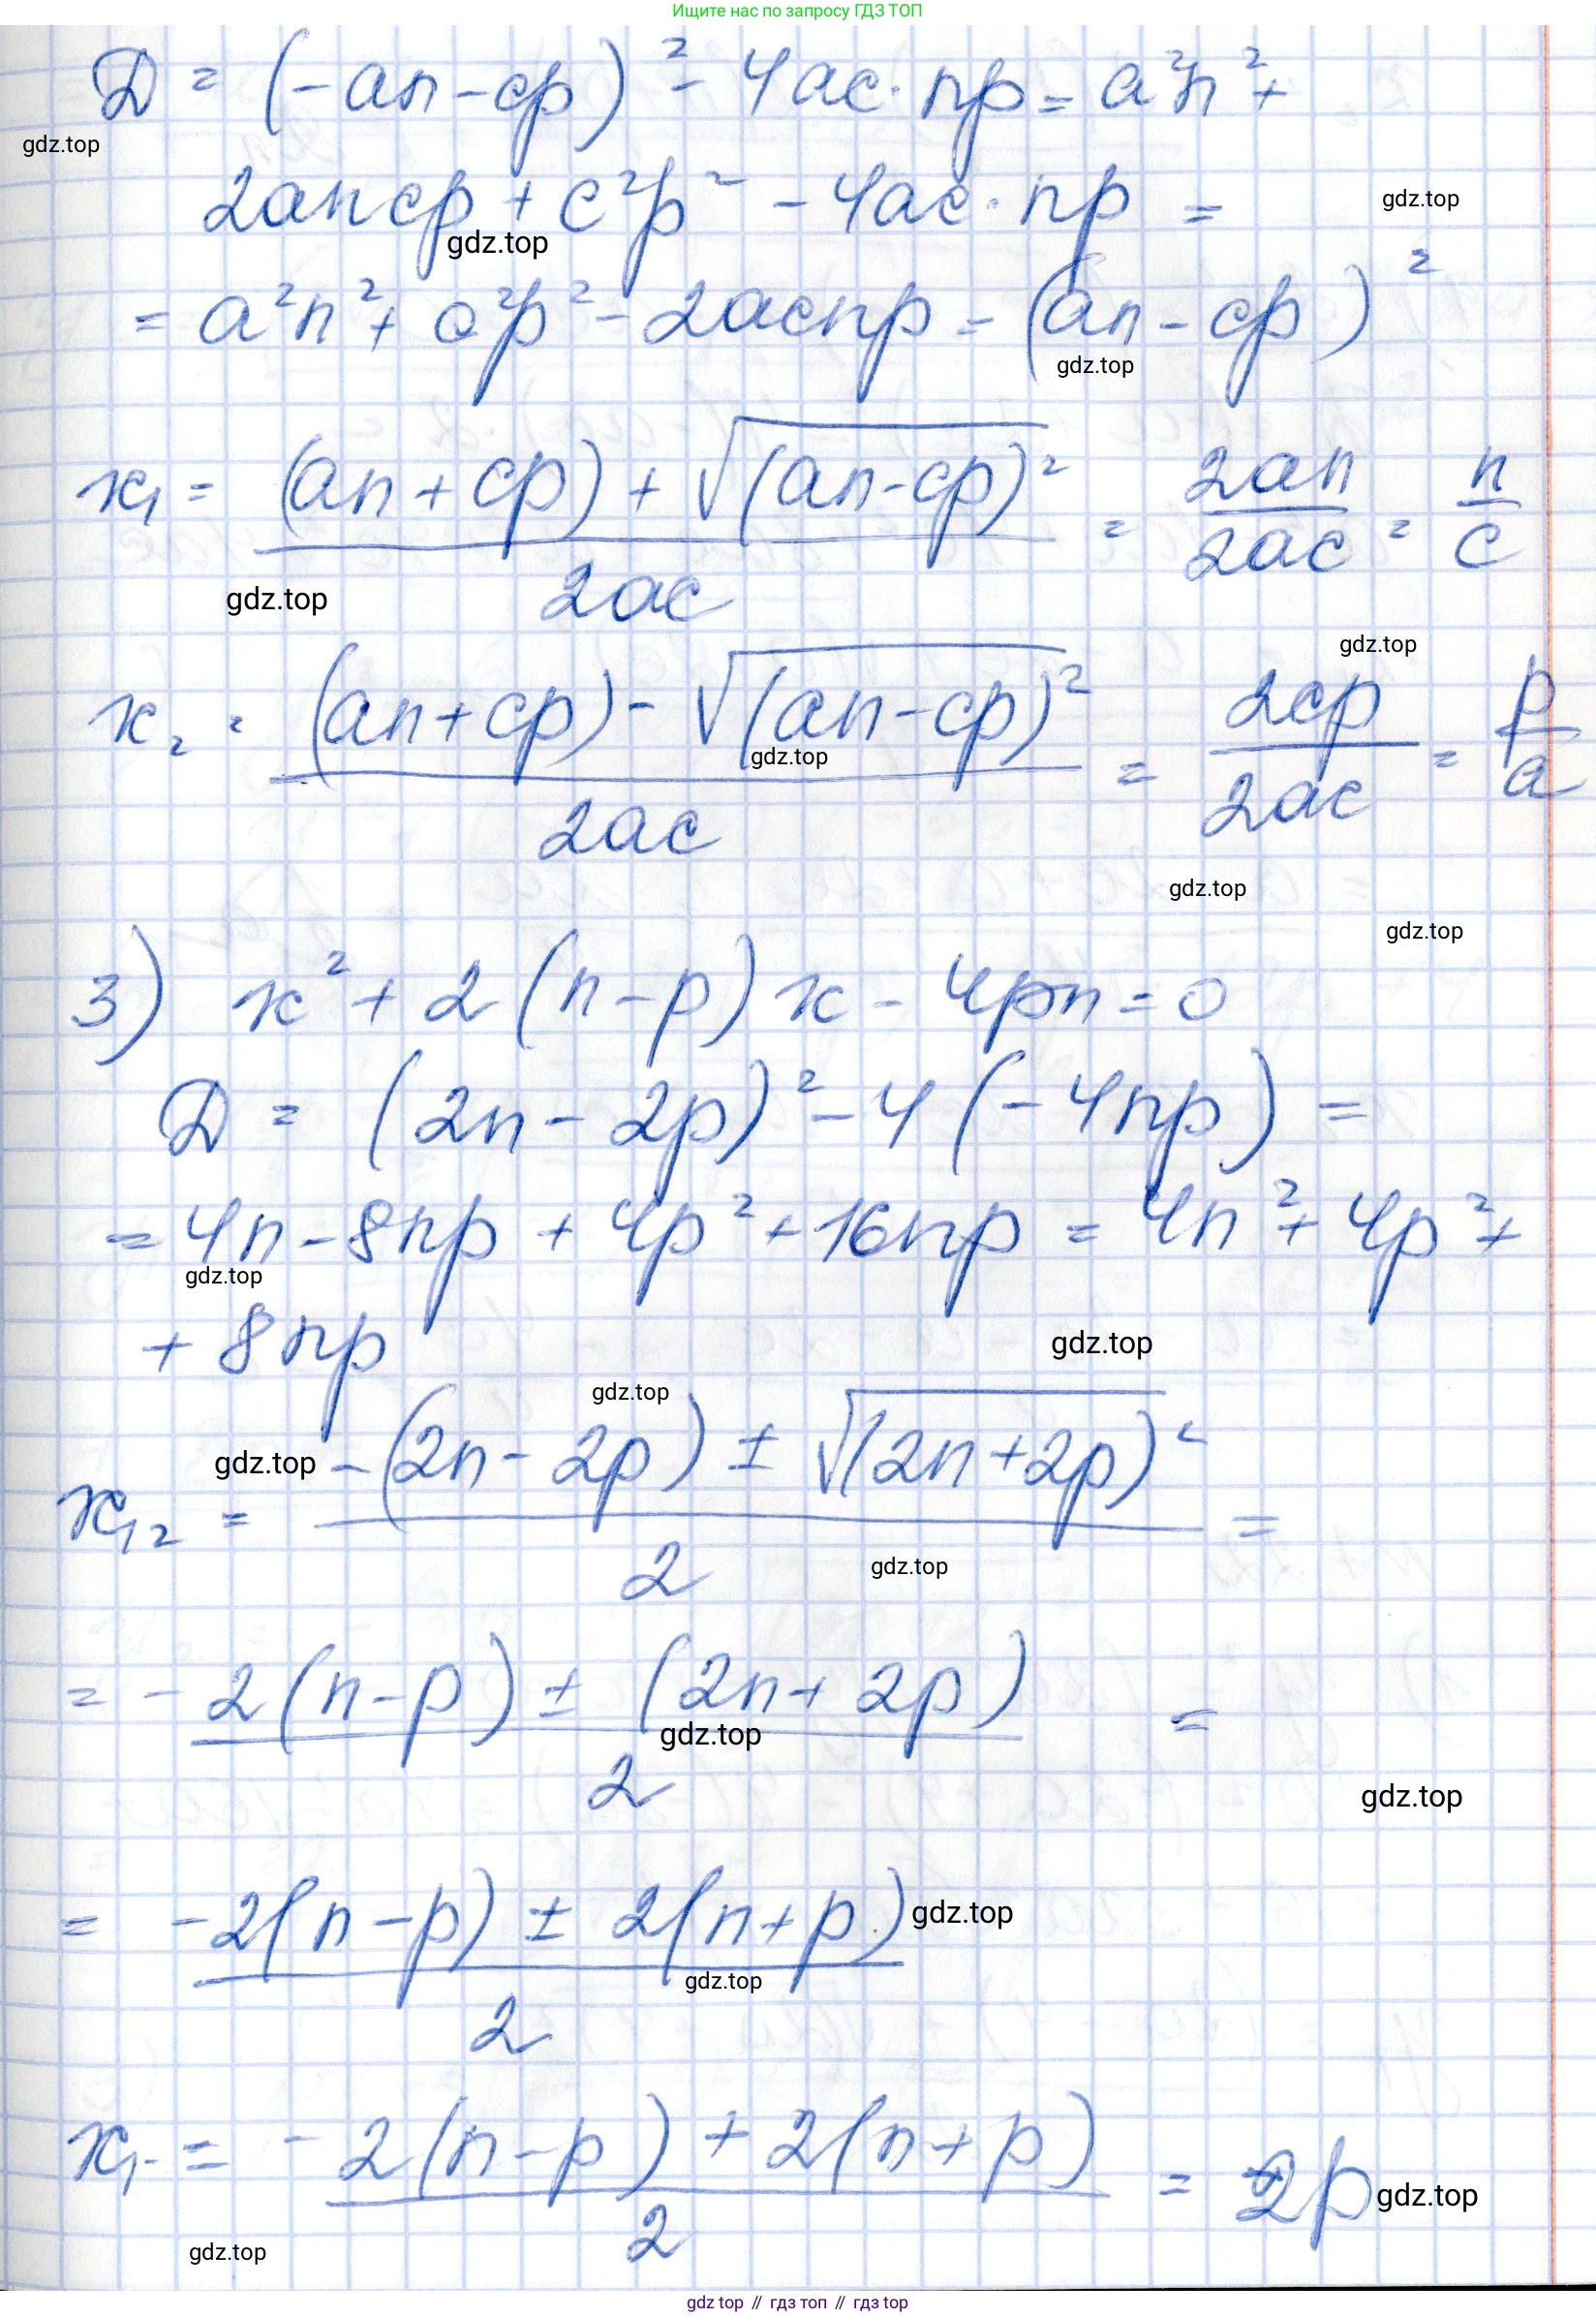 Ищите нас по запросу ГДЗ ТОП
D = (-an - cp)² - 4ac · np = a²n² +
gdz.top
2ancp + c²p² - 4ac · np =
gdz.top
gdz.top
= a²n² + c²p² - 2acnp = (an - cp)²
gdz.top
x₁ = ((an + cp) + √(an - cp)²) / 2ac = 2an / 2ac = n / c
gdz.top
gdz.top
x₂ = ((an + cp) - √(an - cp)²) / 2ac = 2cp / 2ac = p / a
gdz.top
gdz.top
gdz.top
3) x² + 2(n - p)x - 4pn = 0
D = (2n - 2p)² - 4(-4np) =
= 4n - 8np + 4p² + 16np = 4n² + 4p² +
gdz.top
+ 8np
gdz.top
gdz.top
gdz.top
x₁₂ = (-(2n - 2p) ± √(2n + 2p)²) / 2 =
gdz.top
= (-2(n - p) ± (2n + 2p)) / 2 =
gdz.top
gdz.top
= (-2(n - p) ± 2(n + p)) / 2
gdz.top
gdz.top
x₁ = (-2(n - p) + 2(n + p)) / 2 = 2p
gdz.top
gdz.top
gdz top // гдз топ // гдз top